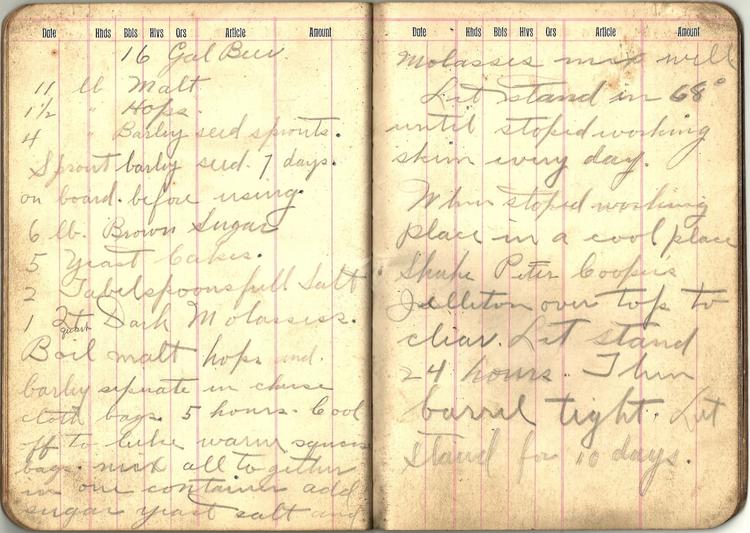 Date Hhds Bbls Hlvs Qrs Article Amount
16 Gal Beer
11 lb Malt
1½ " Hops.
4 " Barley seed sprouts.
Sprout barley seed. 7 days.
on board. before using.
6 lb. Brown Sugar
5 Yeast Cakes.
2 Tabelspoonsfull Salt
1 qt Dark Molassess.
quart
Boil malt hops and.
barley sepirate in cheese
cloth bags. 5 hours. Cool
off to luke warm squeeze
bags. mix all to gether
in one container add
sugar yeast salt and
Date Hhds Bbls Hlvs Qrs Article Amount
Molasses mix well
Let stand in 68°
until stoped working
skim every day.
When stoped working
place in a cool place
Shake Peter Coopers
Jelleton over top to
clear. Let stand
24 hours. Then
barrel tight. Let
stand for 10 days.